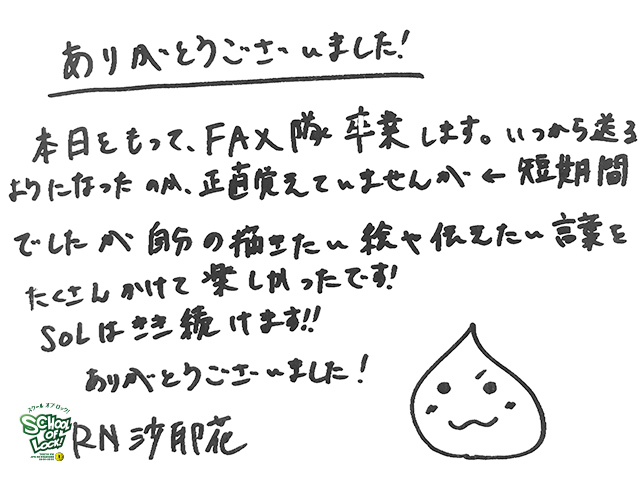 ありがとうございました!
本日をもって、FAX隊卒業します。いつから送る
ようになったのか、正直覚えていませんが←短期間
でしたが自分の描きたい絵や伝えたい言葉を
たくさんかけて楽しかったです!
SOLはきき続けます!!
ありがとうございました!
RN 沙耶花
スクール オブ ロック!
SCHOOL OF LOCK!